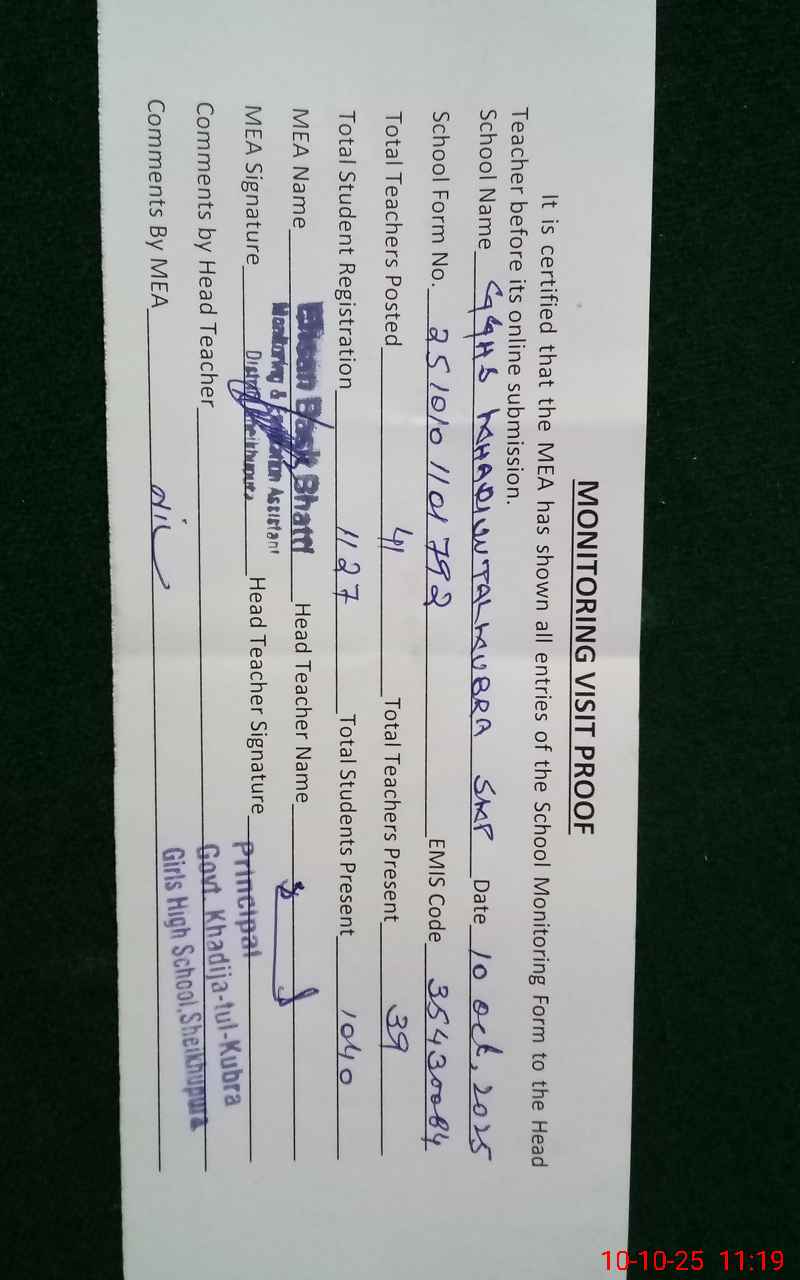 MONITORING VISIT PROOF
It is certified that the MEA has shown all entries of the School Monitoring Form to the Head
Teacher before its online submission.
School Name GGHS KHADIJATALKUBRA SKP Date 10 Oct, 2025
School Form No. 251010 1101792 EMIS Code 35430084
Total Teachers Posted 41 Total Teachers Present 39
Total Student Registration 1127 Total Students Present 1040
MEA Name Bhatti Head Teacher Name
Monitoring & Assistant
MEA Signature Head Teacher Signature
District Sheikhupura
Principal
Comments by Head Teacher
Govt. Khadija-tul-Kubra
Girls High School, Sheikhupura
Comments By MEA Nil
10-10-25 11:19